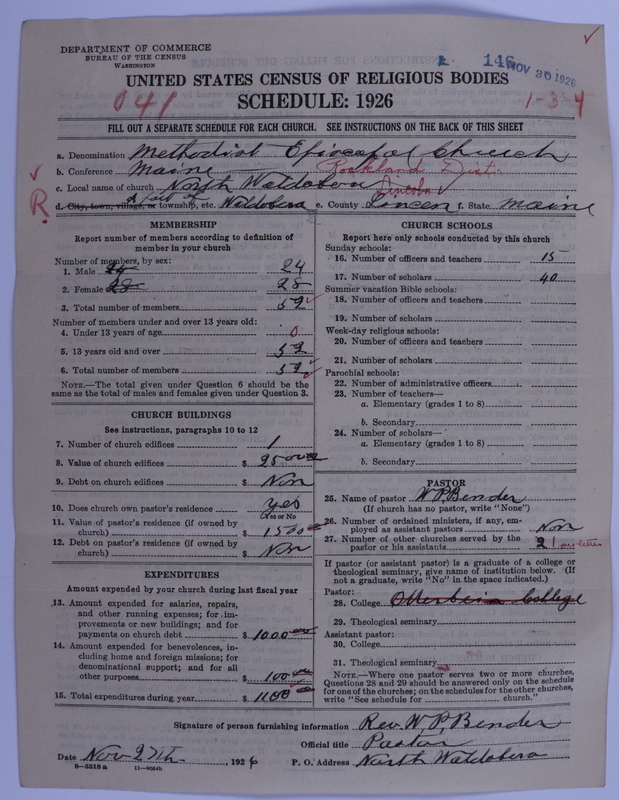 DEPARTMENT OF COMMERCE
BUREAU OF THE CENSUS
WASHINGTON
146
NOV 30 1926
UNITED STATES CENSUS OF RELIGIOUS BODIES
041
SCHEDULE: 1926
1-3-4
FILL OUT A SEPARATE SCHEDULE FOR EACH CHURCH. SEE INSTRUCTIONS ON THE BACK OF THIS SHEET
a. Denomination Methodist Episcopal Church
b. Conference Maine Rockland Dist.
c. Local name of church North Waldoboro Lincoln
R
d. City, town, village, or township, etc. Waldoboro e. County Lincen f. State Maine
MEMBERSHIP
Report number of members according to definition of
member in your church
Number of members, by sex:
1. Male 24 24
2. Female 28 28
3. Total number of members 52
Number of members under and over 13 years old:
4. Under 13 years of age 0
5. 13 years old and over 52
6. Total number of members 52
NOTE.—The total given under Question 6 should be
same as the total of males and females given under Question 3.
CHURCH BUILDINGS
See instructions, paragraphs 10 to 12
7. Number of church edifices 1
8. Value of church edifices $ 2500 00
9. Debt on church edifices $ Non
10. Does church own pastor's residence yes
(Yes or No
11. Value of pastor's residence (if owned by
church) $ 1500 00
12. Debt on pastor's residence (if owned by
church) $ Non
EXPENDITURES
Amount expended by your church during last fiscal year
13. Amount expended for salaries, repairs,
and other running expenses; for im-
provements or new buildings; and for
payments on church debt $ 1000 00
14. Amount expended for benevolences, in-
cluding home and foreign missions; for
denominational support; and for all
other purposes $ 100 00
15. Total expenditures during year $ 1100 00
CHURCH SCHOOLS
Report here only schools conducted by this church
Sunday schools:
16. Number of officers and teachers 15
17. Number of scholars 40
Summer vacation Bible schools:
18. Number of officers and teachers
19. Number of scholars
Week-day religious schools:
20. Number of officers and teachers
21. Number of scholars
Parochial schools:
22. Number of administrative officers
23. Number of teachers—
a. Elementary (grades 1 to 8)
b. Secondary
24. Number of scholars—
a. Elementary (grades 1 to 8)
b. Secondary
PASTOR
25. Name of pastor W. P. Bender
(If church has no pastor, write "None")
26. Number of ordained ministers, if any, em-
ployed as assistant pastors Non
27. Number of other churches served by the
pastor or his assistants 2 1
If pastor (or assistant pastor) is a graduate of a college or
theological seminary, give name of institution below. (If
not a graduate, write "No" in the space indicated.)
Pastor:
28. College Otterbein College
29. Theological seminary
Assistant pastor:
30. College
31. Theological seminary
NOTE.—Where one pastor serves two or more churches,
Questions 28 and 29 should be answered only on the schedule
for one of the churches; on the schedules for the other churches,
write "See schedule for church."
Signature of person furnishing information Rev. W. P. Bender
Official title Pastor
Date Nov 27th, 1926 P. O. Address North Waldoboro
8-5518 a 11-9064b